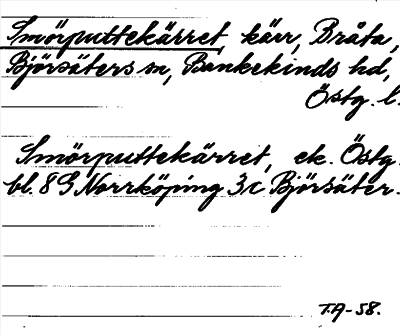 Smörputtekärret, kärr, Bråta,
Björsäters sn, Bankekinds hd,
Östg. l.
Smörputtekärret, ek. Östg.
bl. 8 G Norrköping 3c Björsäter.
T.A-58.